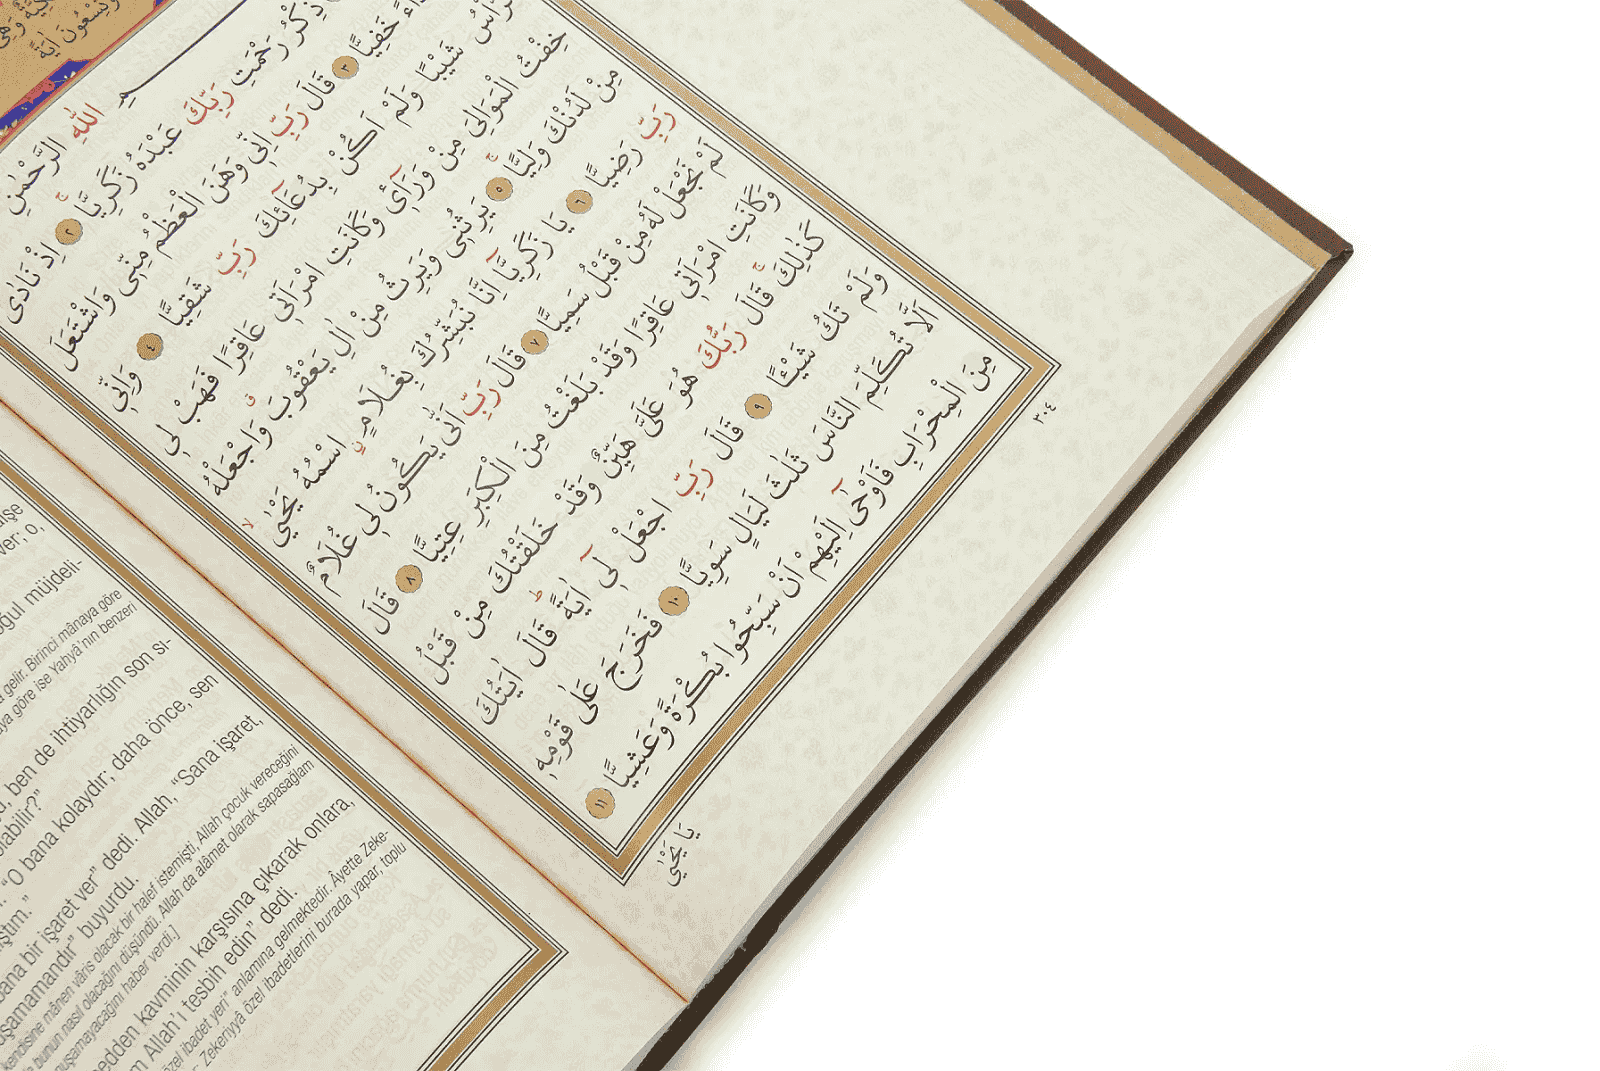 وَهِىَ
وَتِسْعُونَ اٰيَةً
اللهِ الرَّحْمٰنِ
ذِكْرُ رَحْمَتِ رَبِّكَ عَبْدَهُ زَكَرِيَّاۚ ٢ اِذْ نَادٰى
خَفِيًّا ٣ قَالَ رَبِّ اِنّٖى وَهَنَ الْعَظْمُ مِنّٖى وَاشْتَعَلَ
شَيْبًا وَلَمْ اَكُنْ بِدُعَٓائِكَ رَبِّ شَقِيًّا ٤ وَاِنّٖى
خِفْتُ الْمَوَالِىَ مِنْ وَرَٓائٖ وَكَانَتِ امْرَاَتٖى عَاقِرًا فَهَبْ لٖى
مِنْ لَدُنْكَ وَلِيًّاۚ ٥ يَرِثُنٖى وَيَرِثُ مِنْ اٰلِ يَعْقُوبَ وَاجْعَلْهُ
رَبِّ رَضِيًّا ٦ يَا زَكَرِيَّٓا اِنَّا نُبَشِّرُكَ بِغُلَامٍ اسْمُهُ يَحْيٰىۙ
لَمْ نَجْعَلْ لَهُ مِنْ قَبْلُ سَمِيًّا ٧ قَالَ رَبِّ اَنّٰى يَكُونُ لٖى غُلَامٌ
وَكَانَتِ امْرَاَتٖى عَاقِرًا وَقَدْ بَلَغْتُ مِنَ الْكِبَرِ عِتِيًّا ٨ قَالَ
كَذٰلِكَۚ قَالَ رَبُّكَ هُوَ عَلَىَّ هَيِّنٌ وَقَدْ خَلَقْتُكَ مِنْ قَبْلُ
وَلَمْ تَكُ شَيْـًٔا ٩ قَالَ رَبِّ اجْعَلْ لٖٓى اٰيَةًؕ قَالَ اٰيَتُكَ
اَلَّا تُكَلِّمَ النَّاسَ ثَلٰثَ لَيَالٍ سَوِيًّا ١٠ فَخَرَجَ عَلٰى قَوْمِهٖ
مِنَ الْمِحْرَابِ فَاَوْحٰٓى اِلَيْهِمْ اَنْ سَبِّحُوا بُكْرَةً وَعَشِيًّا ١١
يَا يَحْيٰى
٣٠٤
ver; o,
oğul müjdeli-
gelir. Birinci mânaya göre
göre ise Yahyâ’nın benzeri
ben de ihtiyarlığın son sı-
“O bana kolaydır; daha önce, sen
bana bir işaret ver” dedi. Allah, “Sana işaret,
buyurdu.
kendisine mânen vâris olacak bir halef istemişti, Allah çocuk vereceğini
bunun nasıl olacağını düşündü. Allah da alâmet olarak sapasağlam
haber verdi.]
kavminin karşısına çıkarak onlara,
Allah’ı tesbih edin” dedi.
özel ibadet yeri” anlamına gelmektedir. Âyette Zeke-
Zekeriyyâ özel ibadetlerini burada yapar, toplu